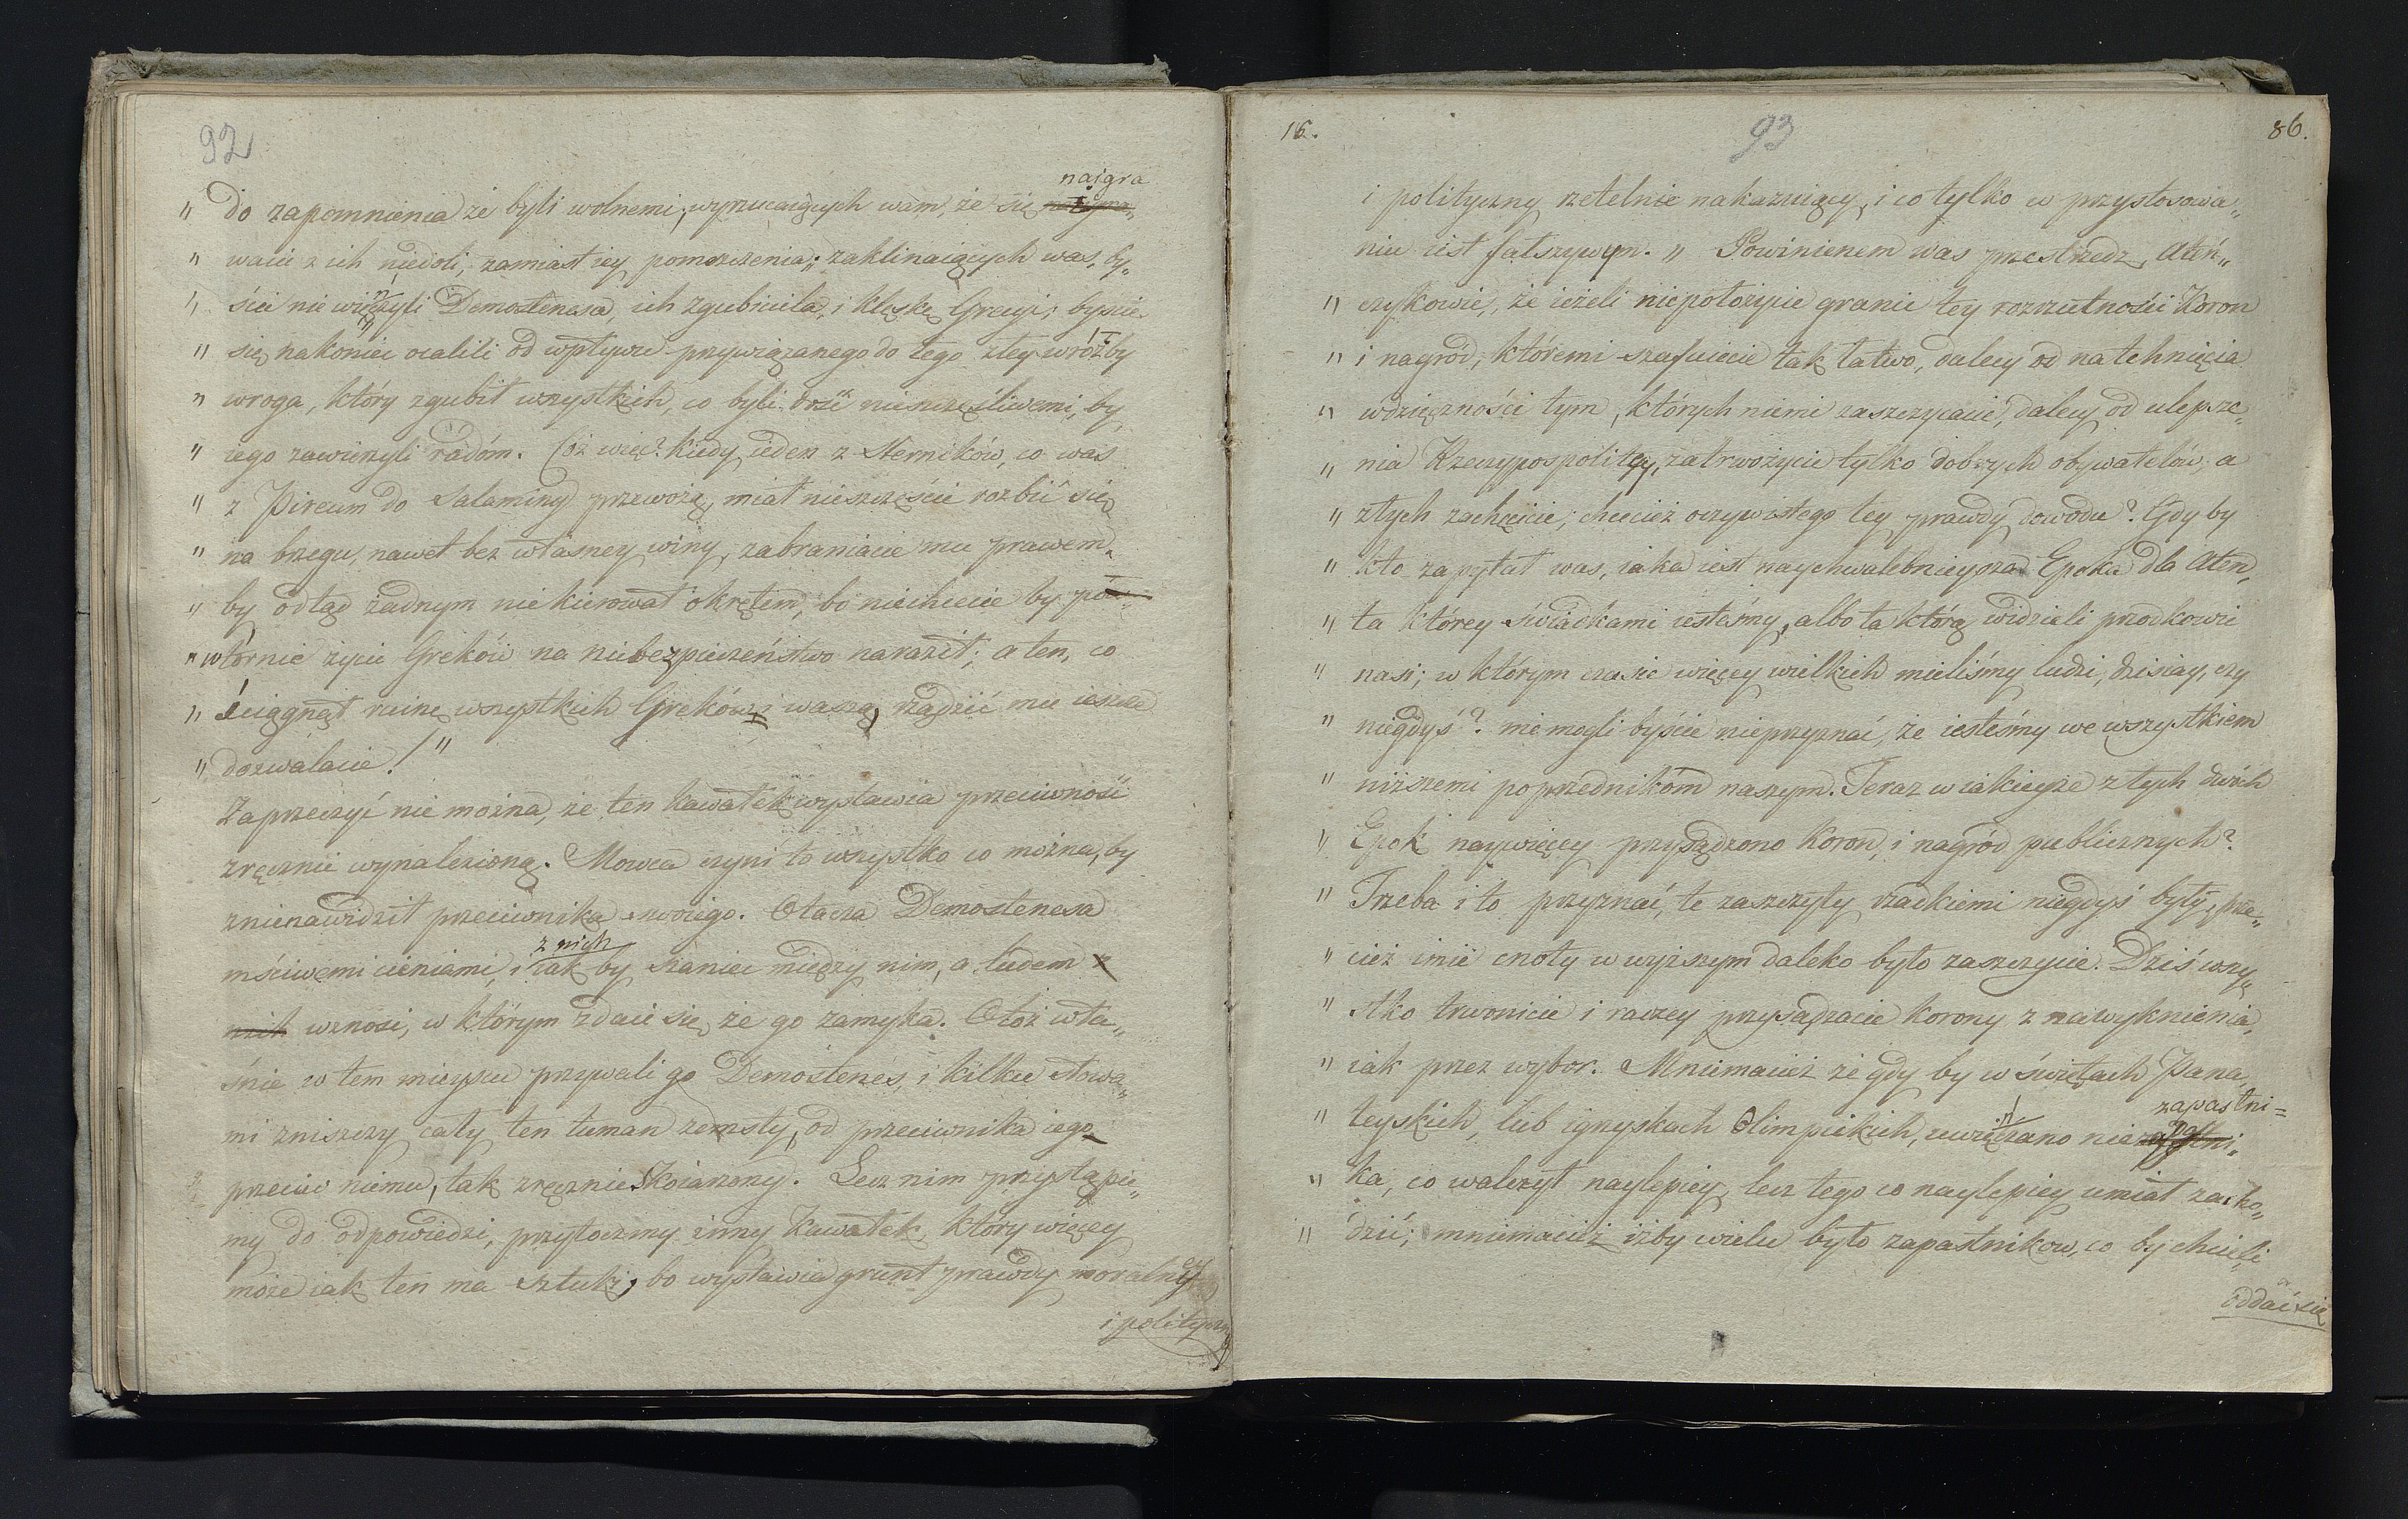 92
naigra
" do zapomnienia że byli wolnemi, wyrzucaiących wam, że się
" wacie z ich niedoli, zamiast iey pomszczenia; zaklinaiących was, by„
" ście nie wieńczyli Demostenesa, ich zgubiciela, i klęskę Grecyi; byście
" się nakoniec ocalili od wpływu przywiązanego do tego złey wróżby
" wroga, który zgubił wszystkich, co byli dość nieszczęśliwemi, by
" iego zawierzyli radóm. Cóż więc? kiedy ieden z Sterników, co was
" z Pireum do Salaminy przewożą, miał nieszczęście rozbić się
" na brzegu, nawet bez własney winy, zabraniacie mu prawem„
" by odtąd żadnym nie kierował okrętem, bo niechcecie by po„
" wtórnie życie Greków na niebezpieczeństwo naraził; a ten, co
" ściągnął ruinę wszystkich Greków i waszą, rządzić mu ieszcze
" dozwalacie! "
Zaprzeczyć nie można, że ten kawałek wystawia przeciwność
zręcznie wynalezioną. Mowca czyni to wszystko co można, by
znienawidził przeciwnika swoiego. Otacza Demostenesa
z nich
mściwemi cieniami, i iak by szaniec między nim, a ludem z
nich wznosi, w którym zdaie się, że go zamyka. Otóż wła„
śnie w tem mieyscu przywali go Demostenes, i kilku słowa„
mi zniszczy cały ten tuman zemsty, od przeciwnika iego
przeciw niemu, tak zręcznie skoiarzony. Lecz nim przystąpie„
my do odpowiedzi, przytoczmy inny kawałek, który więcey
może iak ten ma sztuki, bo wystawia grunt prawdy moralny
i polityczny
16. 93 86.
i polityczny rzetelnie nakazuiący, i co tylko w przystosowa„
niu iest fałszywym. " Powinienem was przestrzedz, Ateń„
" czykowie, że ieżeli niepołożycie granic tey rozrzutności Koron
" i nagród, któremi szafuiecie tak łatwo, dalecy od natchnięcia
" wdzięczności tym, których niemi zaszczycacie, dalecy od ulepsze„
" nia Rzeczypospolitey, zatrwożycie tylko dobrych obywatelów, a
" złych zachęcicie; chcecież oczywistego tey prawdy dowodu? Gdy by
" kto zapytał was, iaka iest naychwalebnieysza Epoka dla Aten,
" ta którey świadkami iesteśmy, albo ta którą widzieli przodkowie
" nasi; w którym czasie więcey wielkich mieliśmy ludzi, dzisiay, czy
" niegdyś? nie mogli byście nieprzyznać, że iesteśmy we wszystkiem
" niższemi poprzednikóm naszym. Teraz w iakieyże z tych dwóch
" Epok naywięcey przysądzono Koron, i nagród publicznych?
" Trzeba i to przyznać, te zaszczyty rzadkiemi niegdyś były, prze„
" cież imie cnoty w wyższym daleko było zaszczycie. Dziś wszy„
" stko trwonicie i raczey przysądzacie korony z nawyknienia,
" iak przez wybor. Mniemacież że gdy by w świętach Pana„
zapaśni=
" teyskich, lub igryskach Olimpickich, uwieńczano nie
" ka, co walczył naylepiey, lecz tego co naylepiey umiał zacho„
" dzić; mniemacież iżby wielu było zapaśnikow, co by chcieli
oddać się